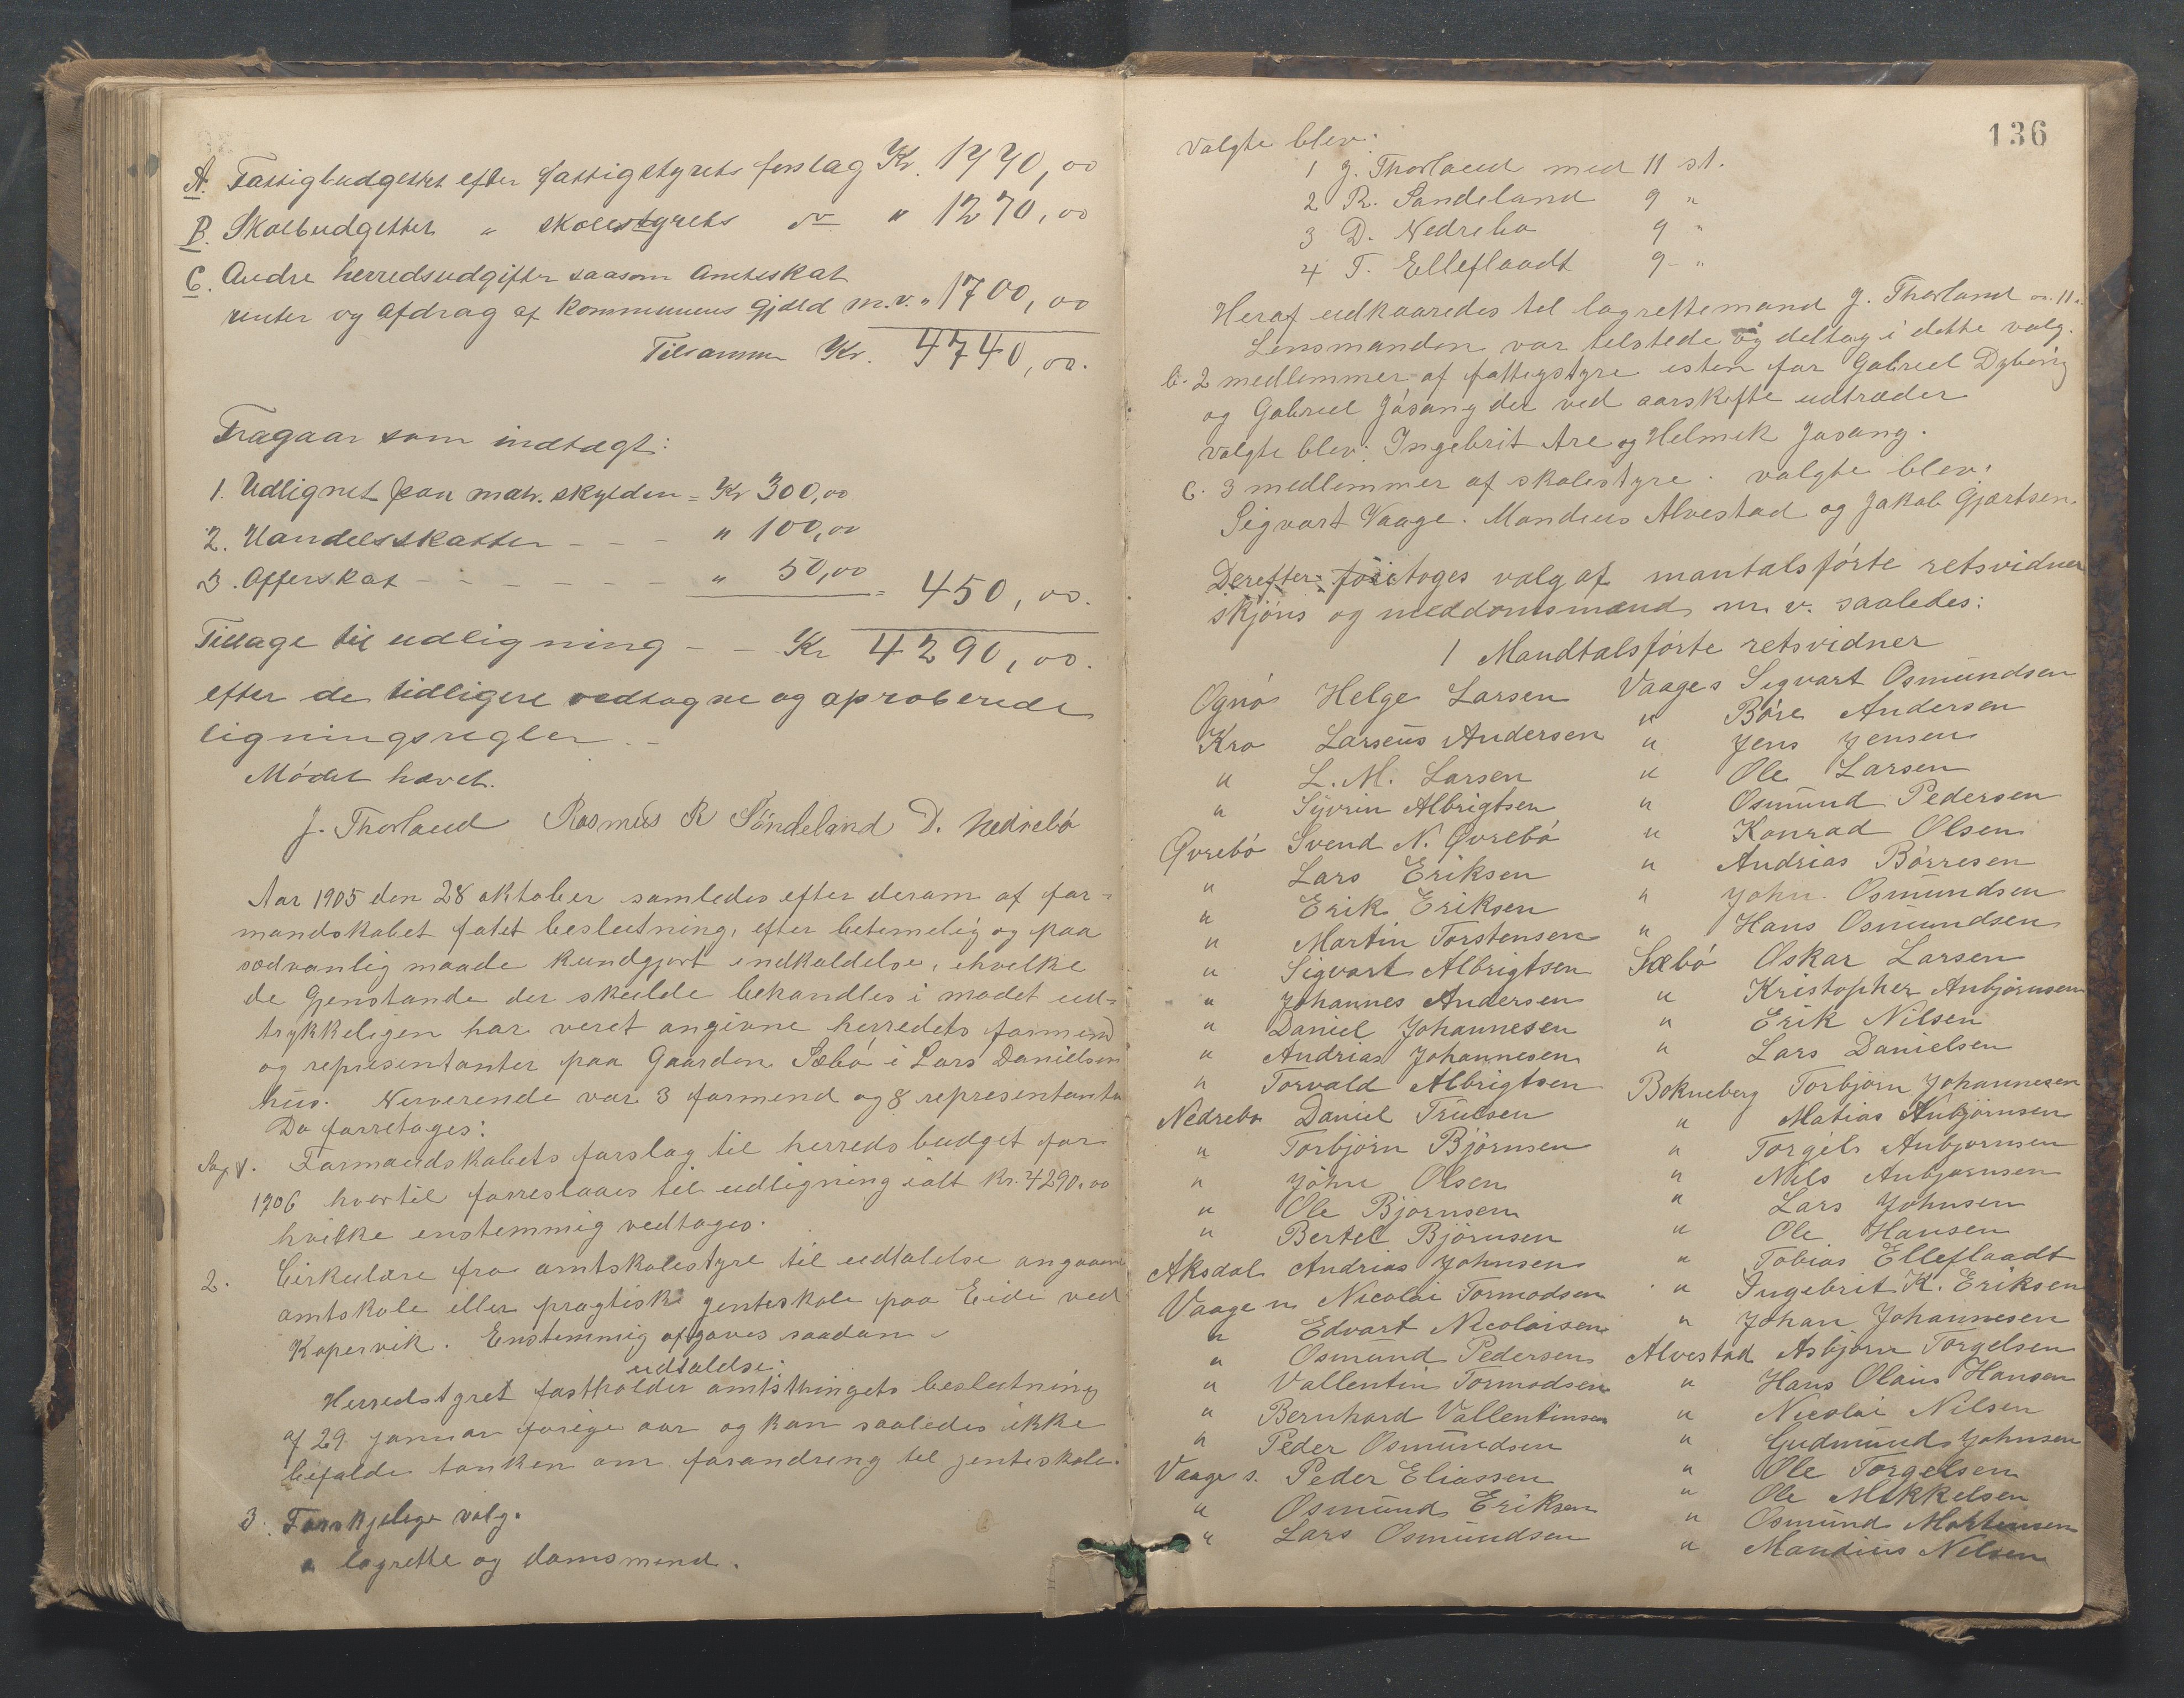 A. Fattigbudgettet efter fattigstyrets forslag Kr. 1770,00
B. Skolbudgettet " skolestyrets do " 1270,00
C. Andre herredsudgifter saasom amtsskat
renter og afdrag af kommunens gjæld m.v. " 1700,00
Tilsammen Kr. 4740,00.
Fragaar som indtægt:
1. Udlignet paa matr. skylden = Kr 300,00
2. Handelsskatten - - - " 100,00
3. Offerskat - - - - - - " 50,00 = 450,00.
Tilbage til udligning - - Kr 4290,00.
efter de tidligere vedtagne og aproberede
ligningsregler. -
Mødet hævet.
J. Thorland Rasmus R Söndeland D. Nedrebö
Aar 1905 den 28 oktober samledes efter derom af for-
mandskabet fatet beslutning, efter betimelig og paa
sedvanlig maade kundgjort indkaldelse, ihvilke
de Gjenstande der skulde behandles i mødet ud-
trykkeligen har veret angivne herredets formend
og representanter paa Gaarden Sæbö i Lars Danielsens
hus. Nerverende var 3 formend og 8 representanter
Da foretoges:
Sag 1. Formandskabets forslag til herredsbudget for
1906 hvortil forreslaaes til udligning ialt Kr. 4290,00
hvilke enstemmig vedtoges.
2. Cirkulære fra amtskolestyre til udtalelse angaaende
amtskole eller pragtisk jenteskole paa Eide ved
Kopervik. Enstemmig afgaves saadan
udtalelse:
Herredstyret fastholder amtsthingets beslutning
af 29 januar forige aar og kan saaledes ikke
bifalde tanken om forandring til jenteskole.
3. Forskjelige valg.
a lagrette og domsmend.
136
valgte blev:
1 J. Thorland med 11 st.
2 R. Sandeland 9 "
3 D. Nedrebo 9 "
4 T. Elleflaadt 9 - "
Heraf udkaaredes til lagrettemand J. Thorland m. 11 "
Lensmanden var tilstede og deltog i dette valg.
b. 2 medlemmer af fattigstyre isten for Gabriel Dybing
og Gabriel Jösang der ved aarskifte udtræder
valgte blev: Ingebrit Are og Helmik Jøsang.
C. 3 medlemmer af skolestyre. valgte blev:
Sigvart Vaage. Mandius Alvestad og Jakob Gjærtsen.
Derefter foretoges valg af mantalsförte retsvidner
skjöns og meddomsmænd m. v. saaledes:
1 Mandtalsförte retsvidner
Ognö Helge Larsen
Kro Larseus Andersen
" L. M. Larsen
" Syvrin Albrigtsen
Øvrebö Svend N. Øvrebö
" Lars Eriksen
" Erik Eriksen
" Martin Torstensen
" Sigvart Albrigtsen
" Johannes Andersen
" Daniel Johannesen
" Andrias Johannesen
" Torvald Albrigtsen
Nedrebø Daniel Trulsen
" Torbjörn Björnsen
" John Olsen
" Ole Björnsen
" Bertel Björnsen
Aksdal Andrias Johnsen
Vaage n Nicolai Tormodsen
" Edvart Nicolaisen
" Osmund Pedersen
" Vallentin Tormodsen
" Bernhard Vallentinsen
" Peder Osmundsen
Vaage s. Peder Eliassen
" Osmund Eriksen
" Lars Osmundsen
Vaage s Sigvart Osmundsen
" Böre Andersen
" Jens Jensen
" Ole Larsen
" Osmund Pedersen
" Konrad Olsen
" Andrias Börresen
" John Osmundsen
" Hans Osmundsen
Sæbö Oskar Larsen
" Kristopher Anbjörnsen
" Erik Nilsen
" Lars Danielsen
Bokneberg Torbjörn Johannesen
" Matias Anbjörnsen
" Torgils Anbjornsen
" Nils Anbjornsen
" Lars Johnsen
" Ole Hansen
" Tobias Elleflaadt
" Ingebrit K. Eriksen
" Johan Johannesen
Alvestad Asbjörn Torgelsen
" Hans Olaus Hansen
" Nicolai Nilsen
" Gudmund Johnsen
" Ole Torgelsen
" Ole Mikkelsen
" Osmund Mortensen
" Mandius Nilsen